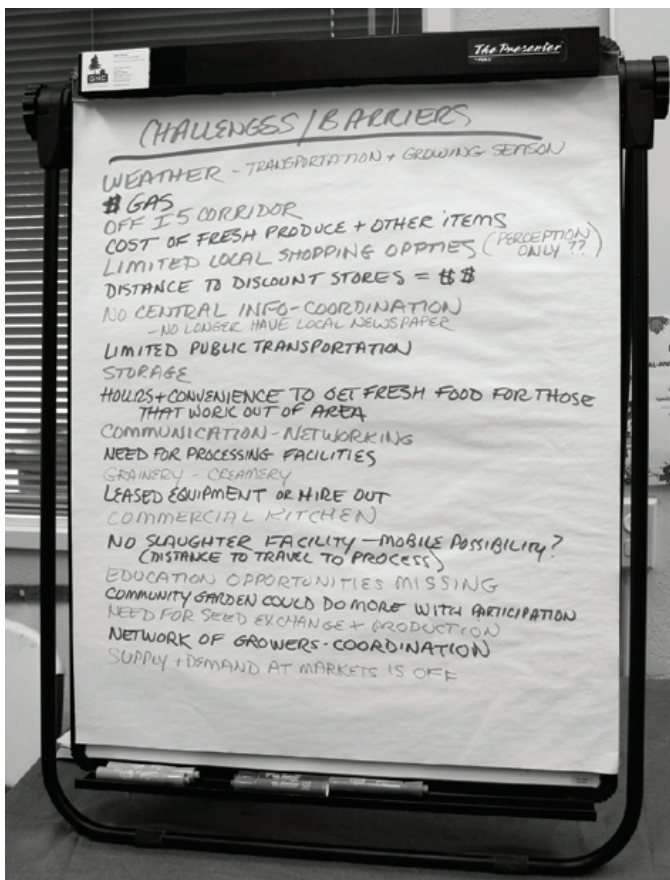 The Presenter
GNC
CHALLENGES/BARRIERS
WEATHER - TRANSPORTATION + GROWING SEASON
$ GAS
OFF I5 CORRIDOR
COST OF FRESH PRODUCE + OTHER ITEMS
LIMITED LOCAL SHOPPING OPPTIES (PERCEPTION
ONLY ??)
DISTANCE TO DISCOUNT STORES = $$
NO CENTRAL INFO-COORDINATION
- NO LONGER HAVE LOCAL NEWSPAPER
LIMITED PUBLIC TRANSPORTATION
STORAGE
HOURS + CONVENIENCE TO GET FRESH FOOD FOR THOSE
THAT WORK OUT OF AREA
COMMUNICATION - NETWORKING
NEED FOR PROCESSING FACILITIES
GRAINERY - CREAMERY
LEASED EQUIPMENT OR HIRE OUT
COMMERCIAL KITCHEN
NO SLAUGHTER FACILITY - MOBILE POSSIBILITY?
(DISTANCE TO TRAVEL TO PROCESS)
EDUCATION OPPORTUNITIES MISSING
COMMUNITY GARDEN COULD DO MORE WITH PARTICIPATION
NEED FOR SEED EXCHANGE + PRODUCTION
NETWORK OF GROWERS - COORDINATION
SUPPLY + DEMAND AT MARKETS IS OFF